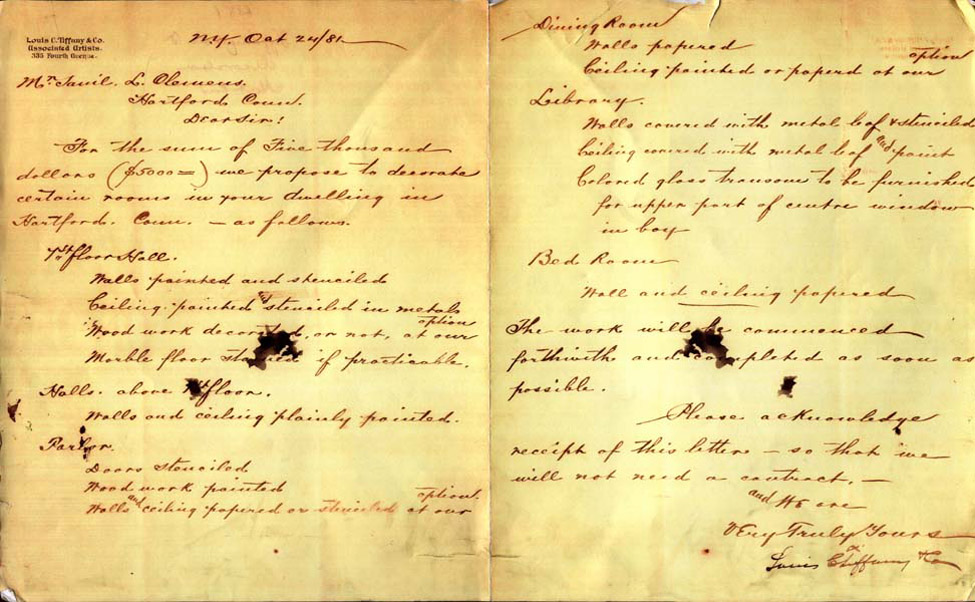 Louis C. Tiffany & Co.
Associated Artists.
335 Fourth Avenue.
N.Y. Oct 24/81
Mr. Saml. L. Clemens.
Hartford Conn.
Dear Sir!
For the sum of Five thousand
dollars ($5000=) we propose to decorate
certain rooms in your dwelling in
Hartford. Conn. – as follows.
1st floor Hall.
Walls painted and stenciled
Ceiling painted and stenciled in metals
Wood work decorated, or not, at our option
Marble floor if practicable.
Halls. above 1st floor.
Walls and ceiling plainly painted.
Parlor.
Doors stenciled
Wood work painted
Walls and ceiling papered or stenciled at our option.
Dining Room
Walls papered
Ceiling painted or paperd at our option
Library.
Walls covered with metal leaf & stenciled
Ceiling covered with metal leaf and paint
Colored glass transome to be furnished
for upper part of centre window
in bay
Bed Room
Wall and ceiling papered
The work will be commenced
forthwith and completed as soon as
possible.
Please acknowledge
receipt of this letter – so that we
will not need a contract. –
and We are
Very Truly Yours
Louis C. Tiffany & Co